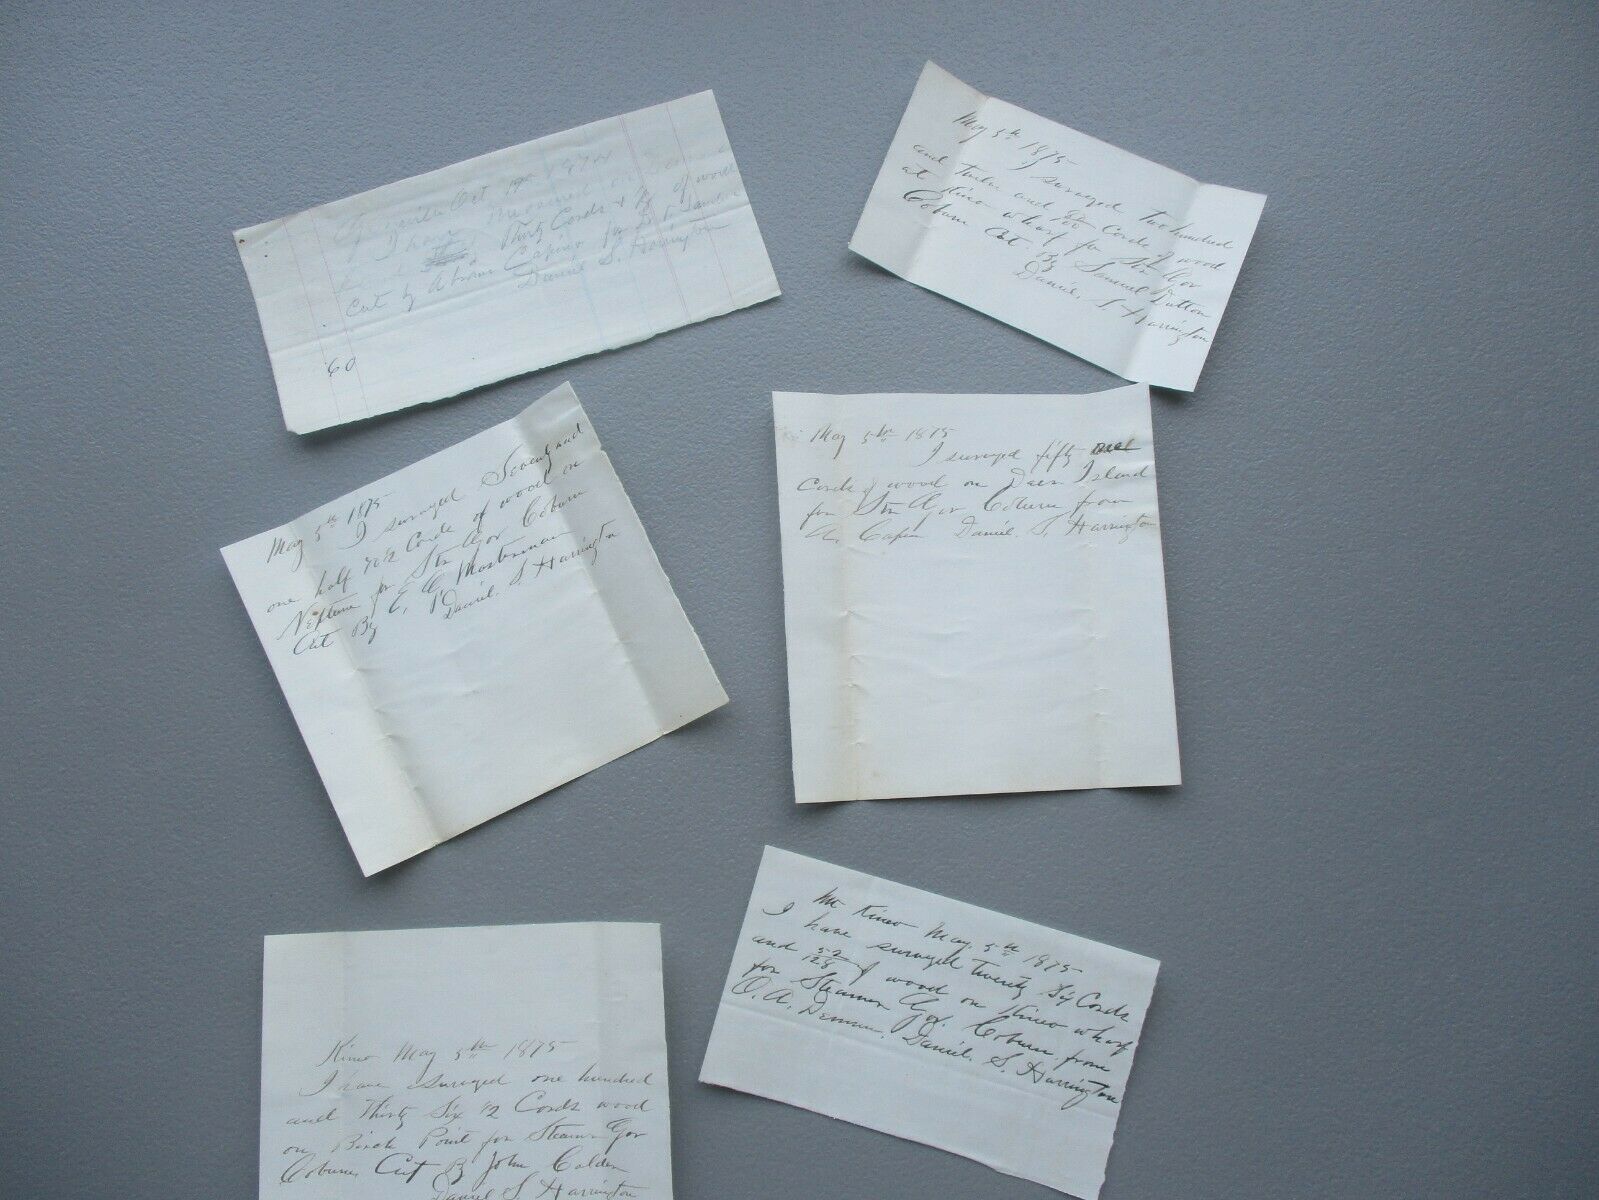 Greenville Oct 19 1874
I have measured on Deer
Thirty Cords & 1/2 of wood
Cut by Abram Capin for D. T. Sanders
Daniel S. Harrington
60
May 5th 1875
I surveyed Two hundred
and Twelve and Cords of wood
at Kineo wharf for Str Gov
Coburn Cut By Samuel Dutton
Daniel. S. Harrington
May 5th 1875
I surveyed Seventy and
one half 70 1/2 Cords of wood on
Neptune for Str Gov Coburn
Cut By E. C. Masterman
Daniel. S. Harrington
May 5th 1875
I surveyed fifty one
Cords of wood on Deer Island
for Str Gov Coburn from
A. Capin Daniel. S. Harrington
Mt Kineo May. 5th 1875
I have surveyed Twenty Six Cords
and 52/128 of wood on Kineo wharf
for Steamer Gov. Coburn from
O. A. Dennen. Daniel. S. Harrington
Kineo May 5th 1875
I have surveyed one hundred
and Thirty Six 1/2 Cords wood
on Birch Point for Steamr Gov
Coburn, Cut By John Calden
Daniel S. Harrington